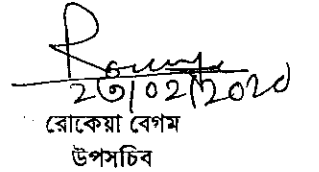 ২৩/০২/২০২০
রোকেয়া বেগম
উপসচিব